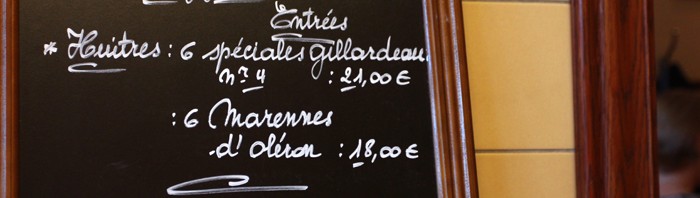 Entrées
* Huitres : 6 spéciales gillardeau
n° 4 : 21,00 €
: 6 Marennes
-d' oléron : 18,00 €